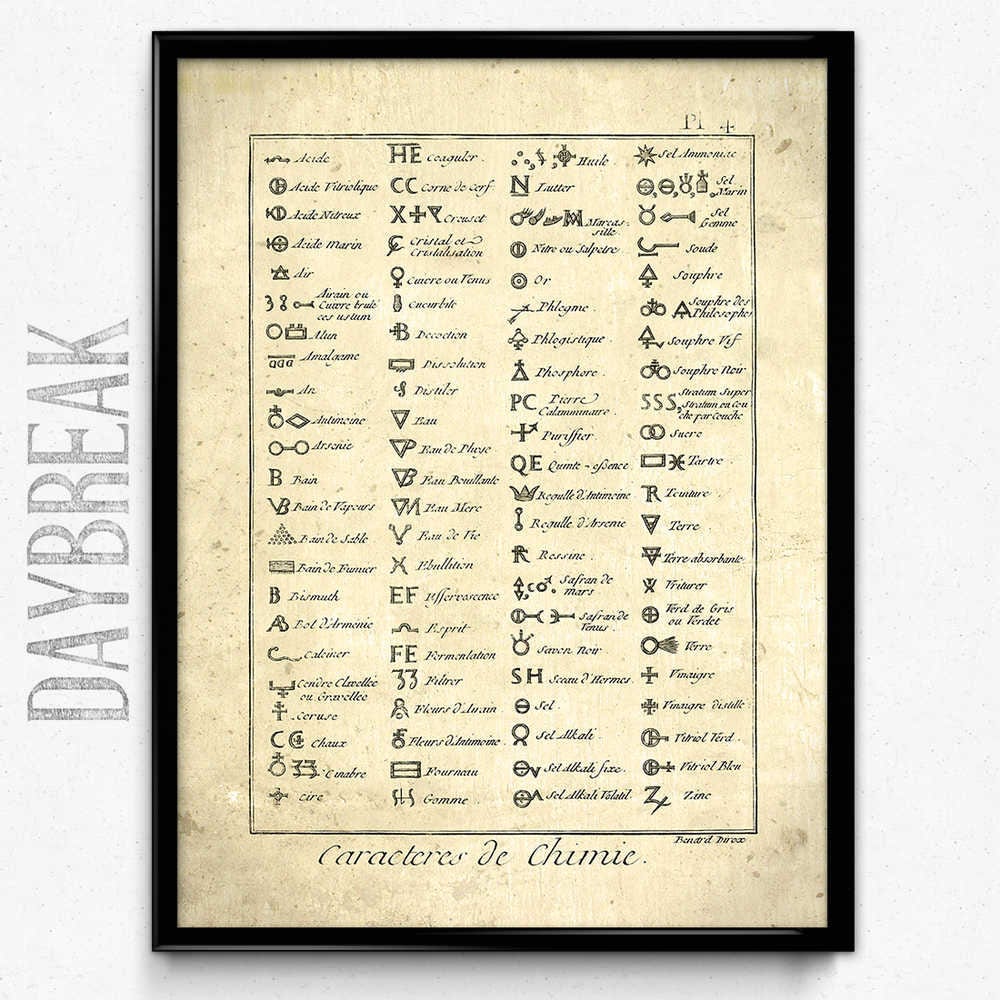 DAYBREAK
Pl 4
Acide
Acide Vitriolique
Acide Nitreux
Acide Marin
Air
Airain ou
Cuivre brulé
œs ustum
Alun
Amalgame
An
Antimoine
Arsenic
B Bain
Bain de Vapeurs
Bain de Sable
Bain de Fumier
B Bismuth
Bol d'Armenie
Calciner
Cendre Clavellée
ou Gravellée
Ceruse
Chaux
Cinabre
Cire
HE Coaguler.
CC Corne de Cerf
Creuset
Cristal et
Cristalisation
Cuivre ou Venus
Cucurbite
Decoction
Dissolution
Distiler
Eau
Eau de Pluye
Eau Bouillante
Eau Mere
Eau de Vie
Ebullition
EF Effervescence
Esprit
FE Fermentation
Filtrer
Fleurs d'Airain
Fleurs d'Antimoine
Fourneau
Gomme
Huile
N Lutter
Marcas-
sille
Nitre ou Salpetre
Or
Phlegme
Phlogistique
Phosphore
PC Pierre
Calaminaire
Puriffier
QE Quinte-essence
Regulle d'Antimoine
Regulle d'Arsenic
Ressine
Safran de
mars
Safran de
Venus
Savon Noir
SH Sceau d'Hermes
Sel
Sel Alkali
Sel Alkali fixe
Sel Alkali Volatil
Sel Ammoniac
Sel
Marin
Sel
Gemme
Soude
Souphre
Souphre des
Philosophes
Souphre Vif
Souphre Noir
SSS, Stratum Super
Stratum ou Cou
che par Couche
Sucre
Tartre
Teinture
Terre
Terre absorbante
Triturer
Verd de Gris
ou Verdet
Verre
Vinaigre
Vinaigre distillé
Vitriol Verd
Vitriol Bleu
Zinc
Benard Direx
Caracteres de Chimie.